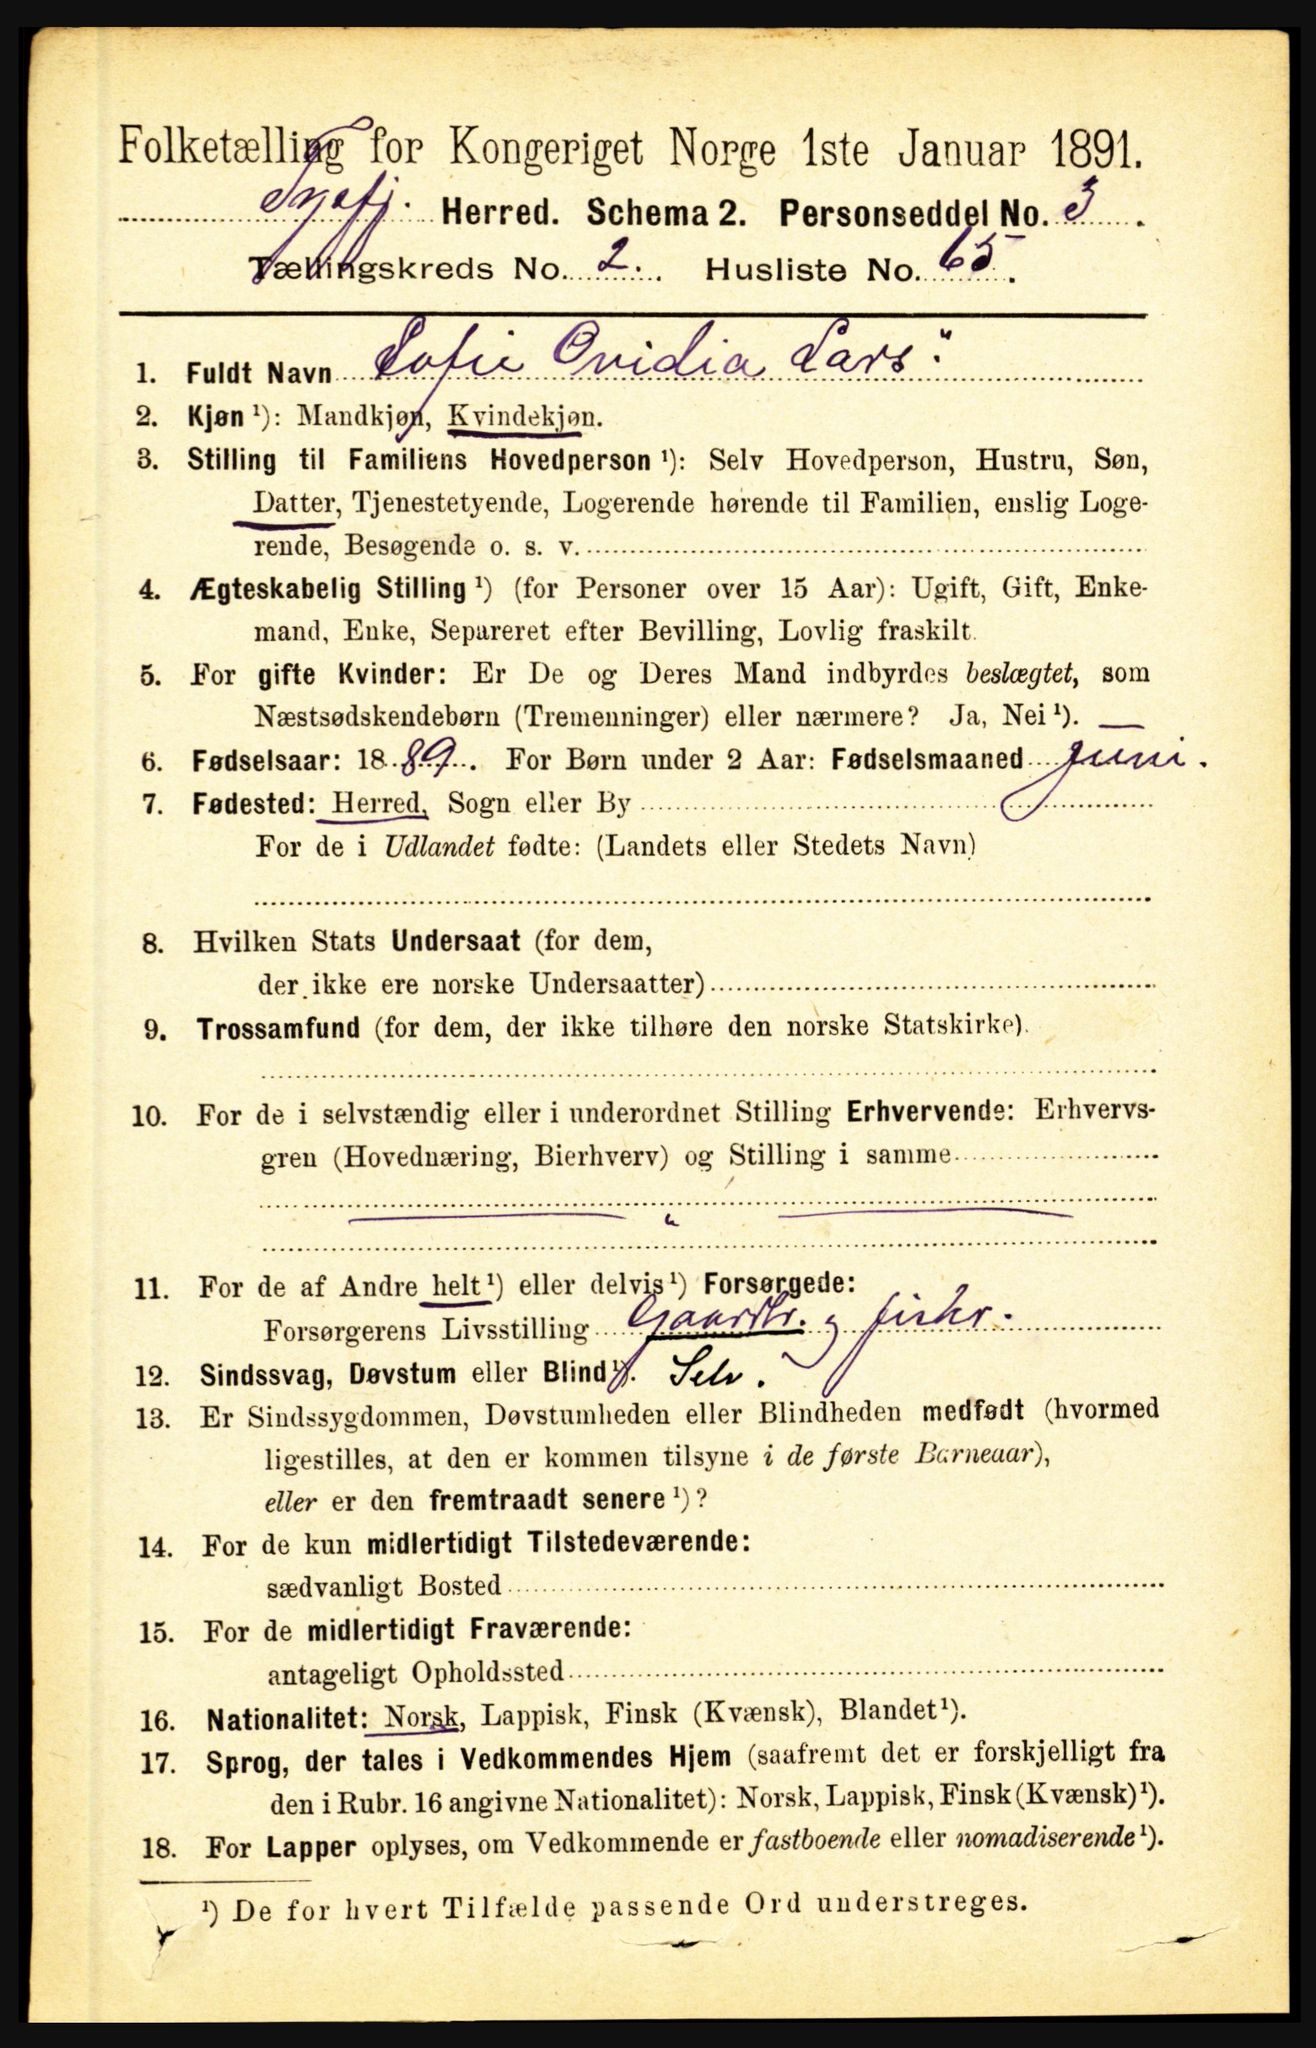 Folketælling for Kongeriget Norge 1ste Januar 1891.
Herred. Schema 2. Personseddel No. 3.
Tællingskreds No. 2. Husliste No. 65.
1. Fuldt Navn Sofie Ovidia Lars"
2. Kjøn ¹): Mandkjøn, Kvindekjøn.
3. Stilling til Familiens Hovedperson ¹): Selv Hovedperson, Hustru, Søn,
Datter, Tjenestetyende, Logerende hørende til Familien, enslig Loge-
rende, Besøgende o. s. v.
4. Ægteskabelig Stilling ¹) (for Personer over 15 Aar): Ugift, Gift, Enke-
mand, Enke, Separeret efter Bevilling, Lovlig fraskilt.
5. For gifte Kvinder: Er De og Deres Mand indbyrdes beslægtet, som
Næstsødskendebørn (Tremenninger) eller nærmere? Ja, Nei ¹). —
6. Fødselsaar: 1889. For Børn under 2 Aar: Fødselsmaaned Juni.
7. Fødested: Herred, Sogn eller By
For de i Udlandet fødte: (Landets eller Stedets Navn)
8. Hvilken Stats Undersaat (for dem,
der ikke ere norske Undersaatter)
9. Trossamfund (for dem, der ikke tilhøre den norske Statskirke).
10. For de i selvstændig eller i underordnet Stilling Erhvervende: Erhvervs-
gren (Hovednæring, Bierhverv) og Stilling i samme
— " —
11. For de af Andre helt ¹) eller delvis ¹) Forsørgede:
Forsørgerens Livsstilling Gaardbr. og fisker.
12. Sindssvag, Døvstum eller Blind ¹). Selv.
13. Er Sindssygdommen, Døvstumheden eller Blindheden medfødt (hvormed
ligestilles, at den er kommen tilsyne i de første Barneaar),
eller er den fremtraadt senere ¹)?
14. For de kun midlertidigt Tilstedeværende:
sædvanligt Bosted
15. For de midlertidigt Fraværende:
antageligt Opholdssted
16. Nationalitet: Norsk, Lappisk, Finsk (Kvænsk), Blandet ¹).
17. Sprog, der tales i Vedkommendes Hjem (saafremt det er forskjelligt fra
den i Rubr. 16 angivne Nationalitet): Norsk, Lappisk, Finsk (Kvænsk) ¹).
18. For Lapper oplyses, om Vedkommende er fastboende eller nomadiserende ¹).
¹) De for hvert Tilfælde passende Ord understreges.